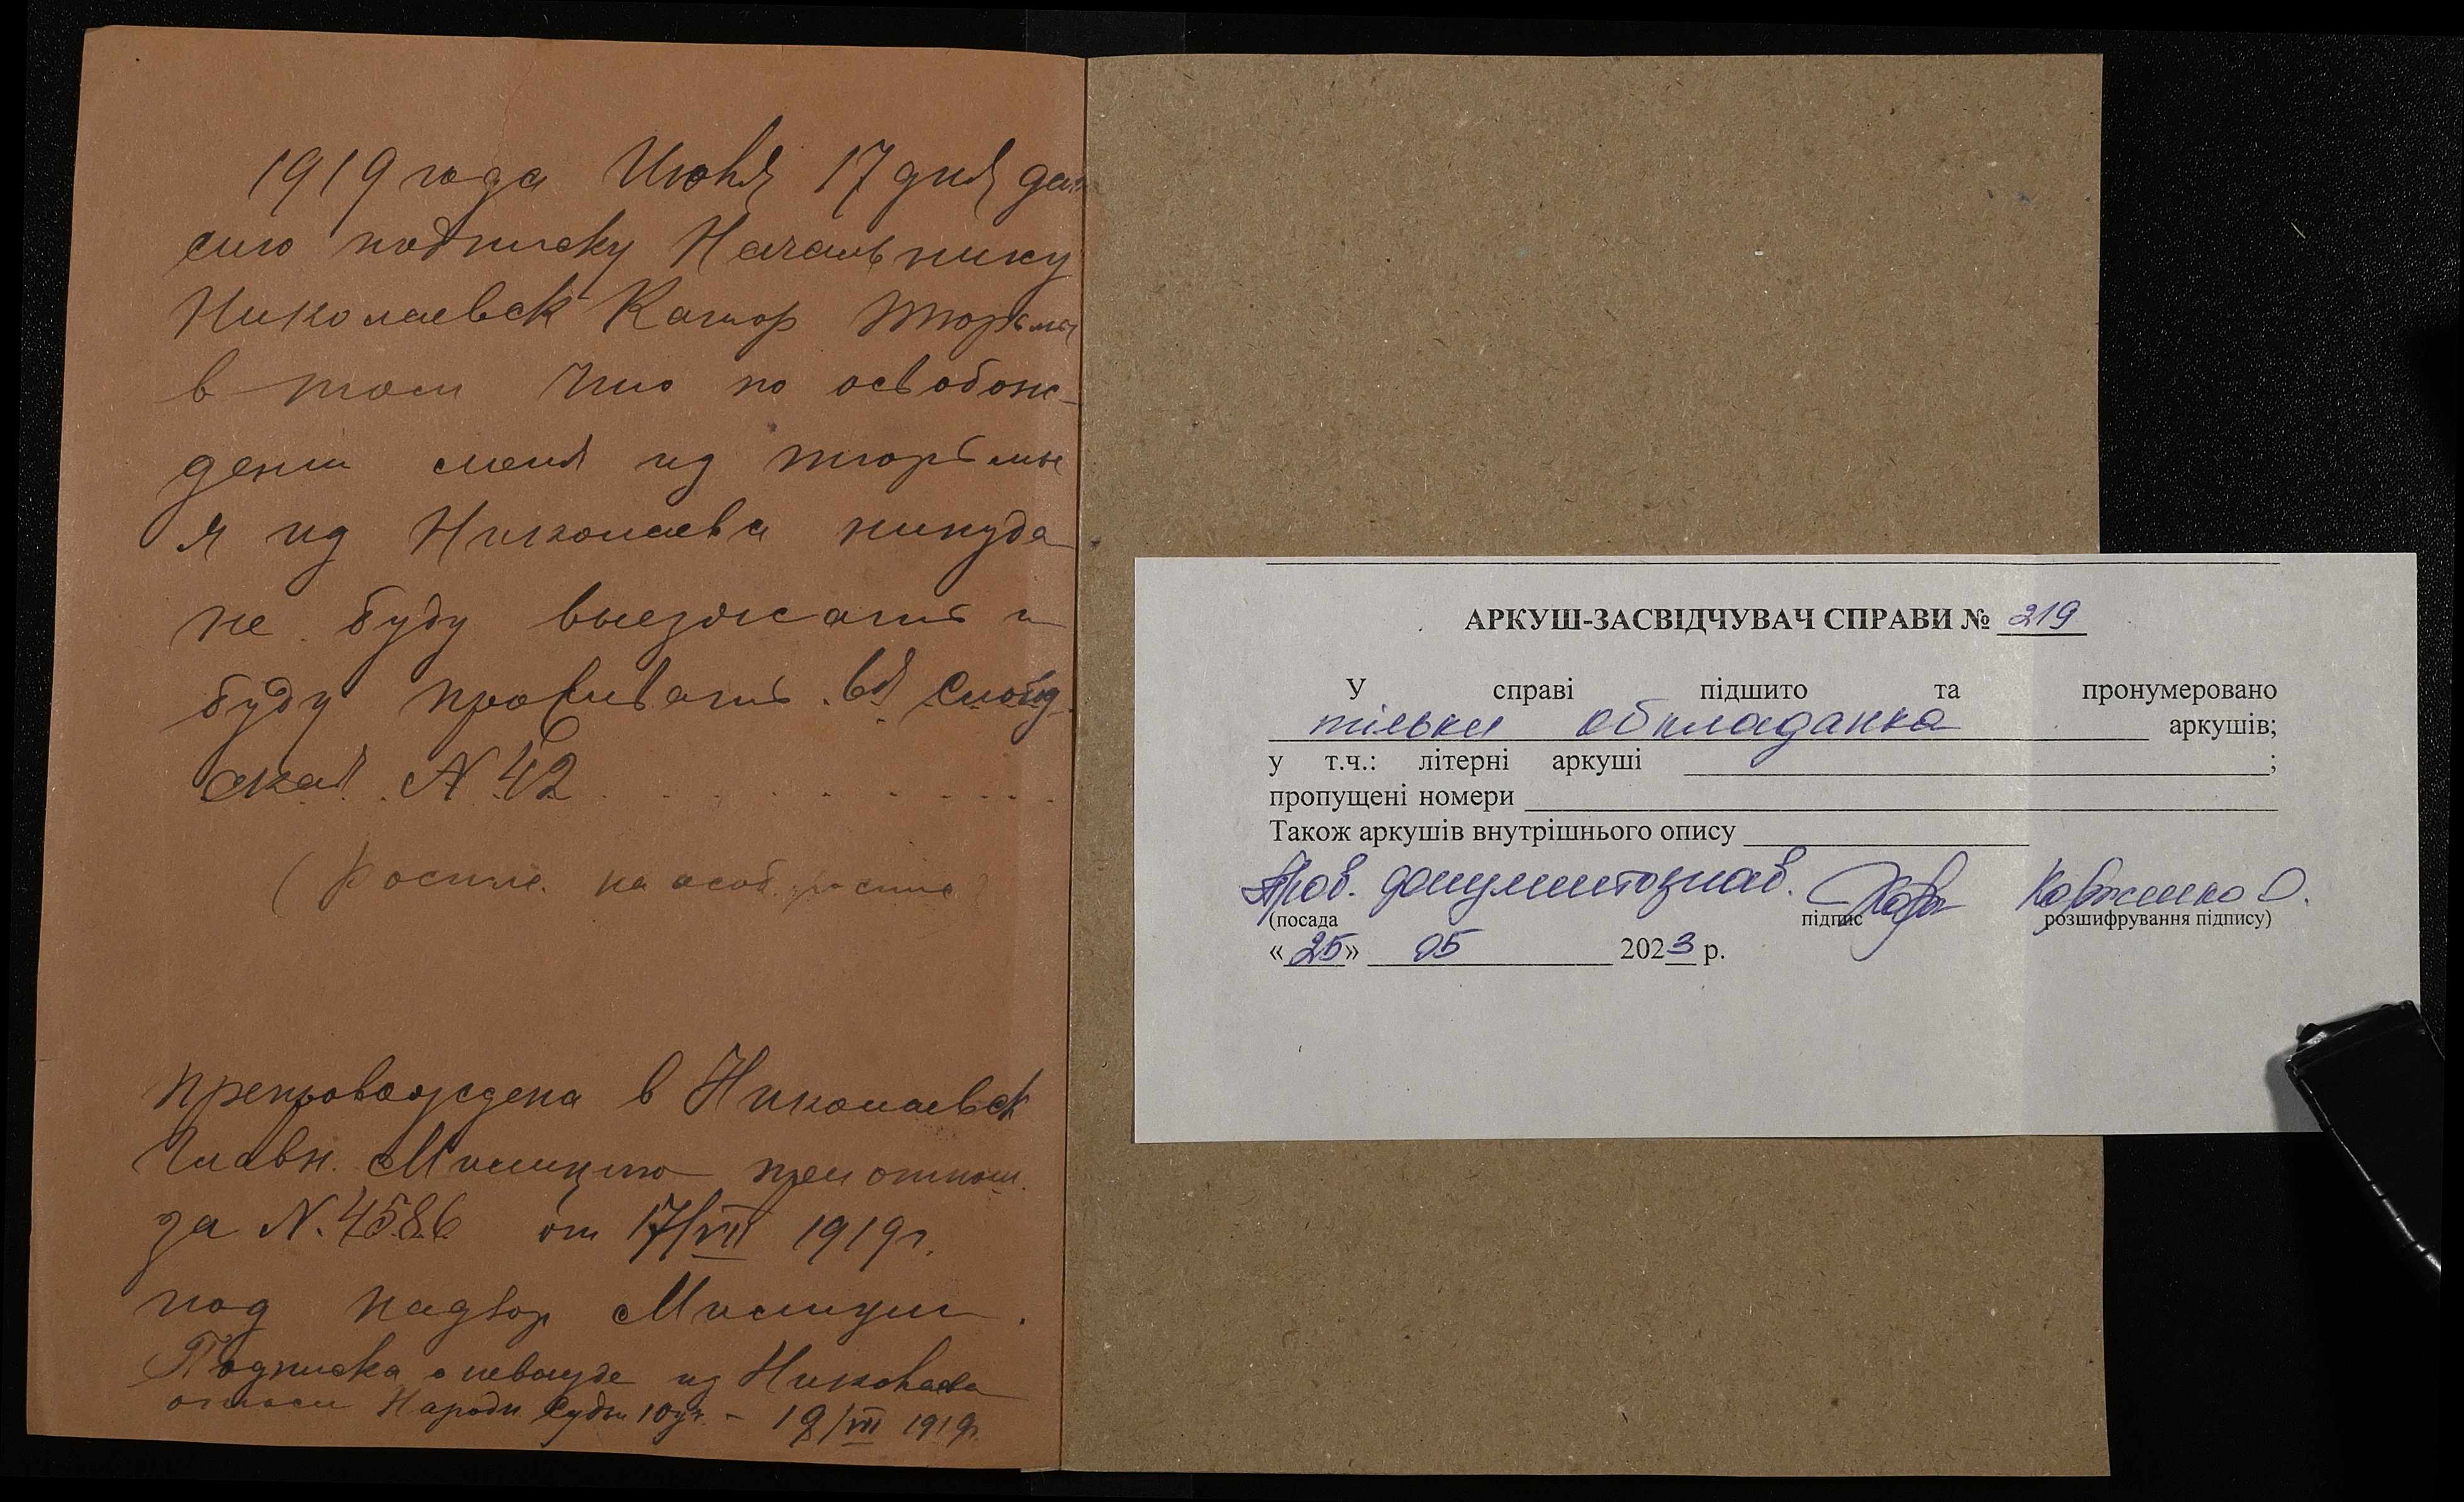 1919 года Июля 17 дня даю
сию подписку Начальнику
Николаевск Катор тюрьмы
в том что по освобож-
дении меня из тюрьмы
я из Николаева никуда
не буду выезжать и
буду проживать
ская N 42
на особ.
препровождена в Николаевск
Главн. Милицию при отнош.
за N. 4586 от 17/VII 1919 г.
под надзор Милиции.
Подписка о невыезде из Николаева
Народн. Судьи 10 уч. - 19/VII 1919 г.
АРКУШ-ЗАСВІДЧУВАЧ СПРАВИ № 219
У справі підшито та пронумеровано
тільки обкладанка аркушів;
у т.ч.: літерні аркуші ;
пропущені номери
Також аркушів внутрішнього опису
Пров. документознав. Ковженко О.
(посада підпис розшифрування підпису)
«25» 05 2023 р.